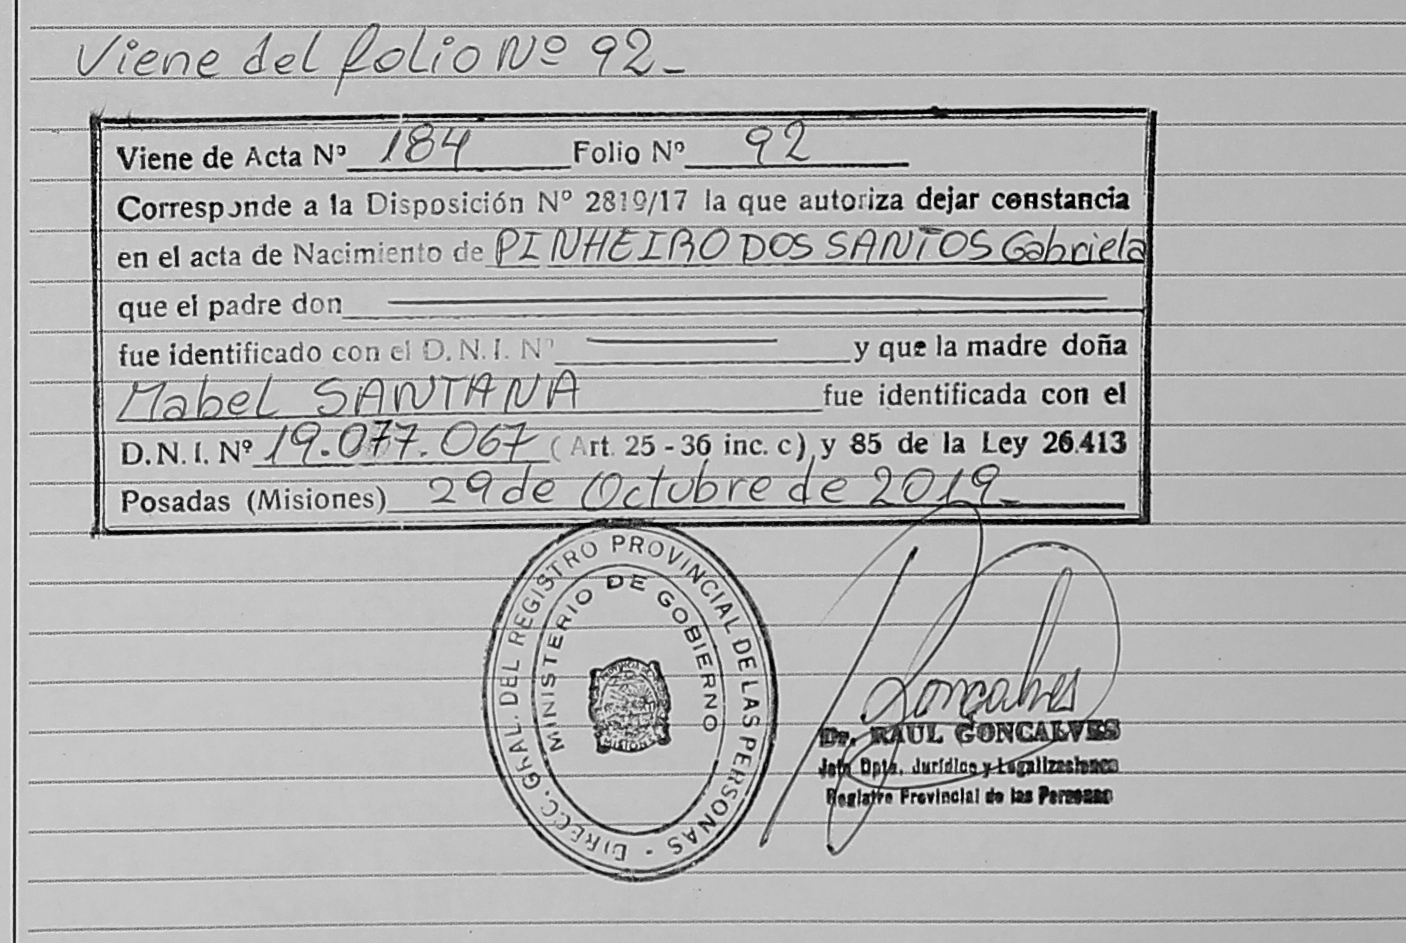 Viene del folio Nº 92_
Viene de Acta Nº 184 Folio Nº 92
Corresponde a la Disposición Nº 2819/17 la que autoriza dejar constancia
en el acta de Nacimiento de PINHEIRO DOS SANTOS Gabriela
que el padre don
fue identificado con el D.N.I. Nº y que la madre doña
Mabel SANTANA fue identificada con el
D.N.I. Nº 19.077.067 (Art. 25 - 36 inc. c) y 85 de la Ley 26.413
Posadas (Misiones) 29 de Octubre de 2019_
DIRECC. GRAL. DEL REGISTRO PROVINCIAL DE LAS PERSONAS -
MINISTERIO DE GOBIERNO
MISIONES
Goncalves
Dr. RAUL GONCALVES
Jefe Dpto. Jurídico y Legalizaciones
Registro Provincial de las Personas